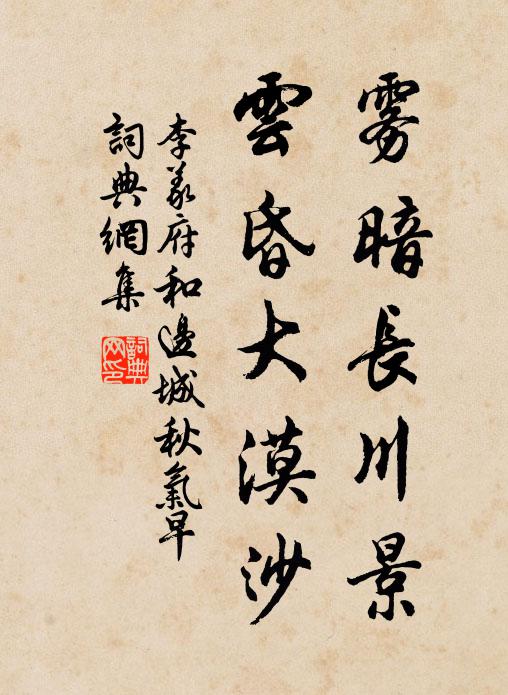 雾暗長川景
雲昏大漠沙
李義府和邊城秋氣早
詞典網集
詞典网印